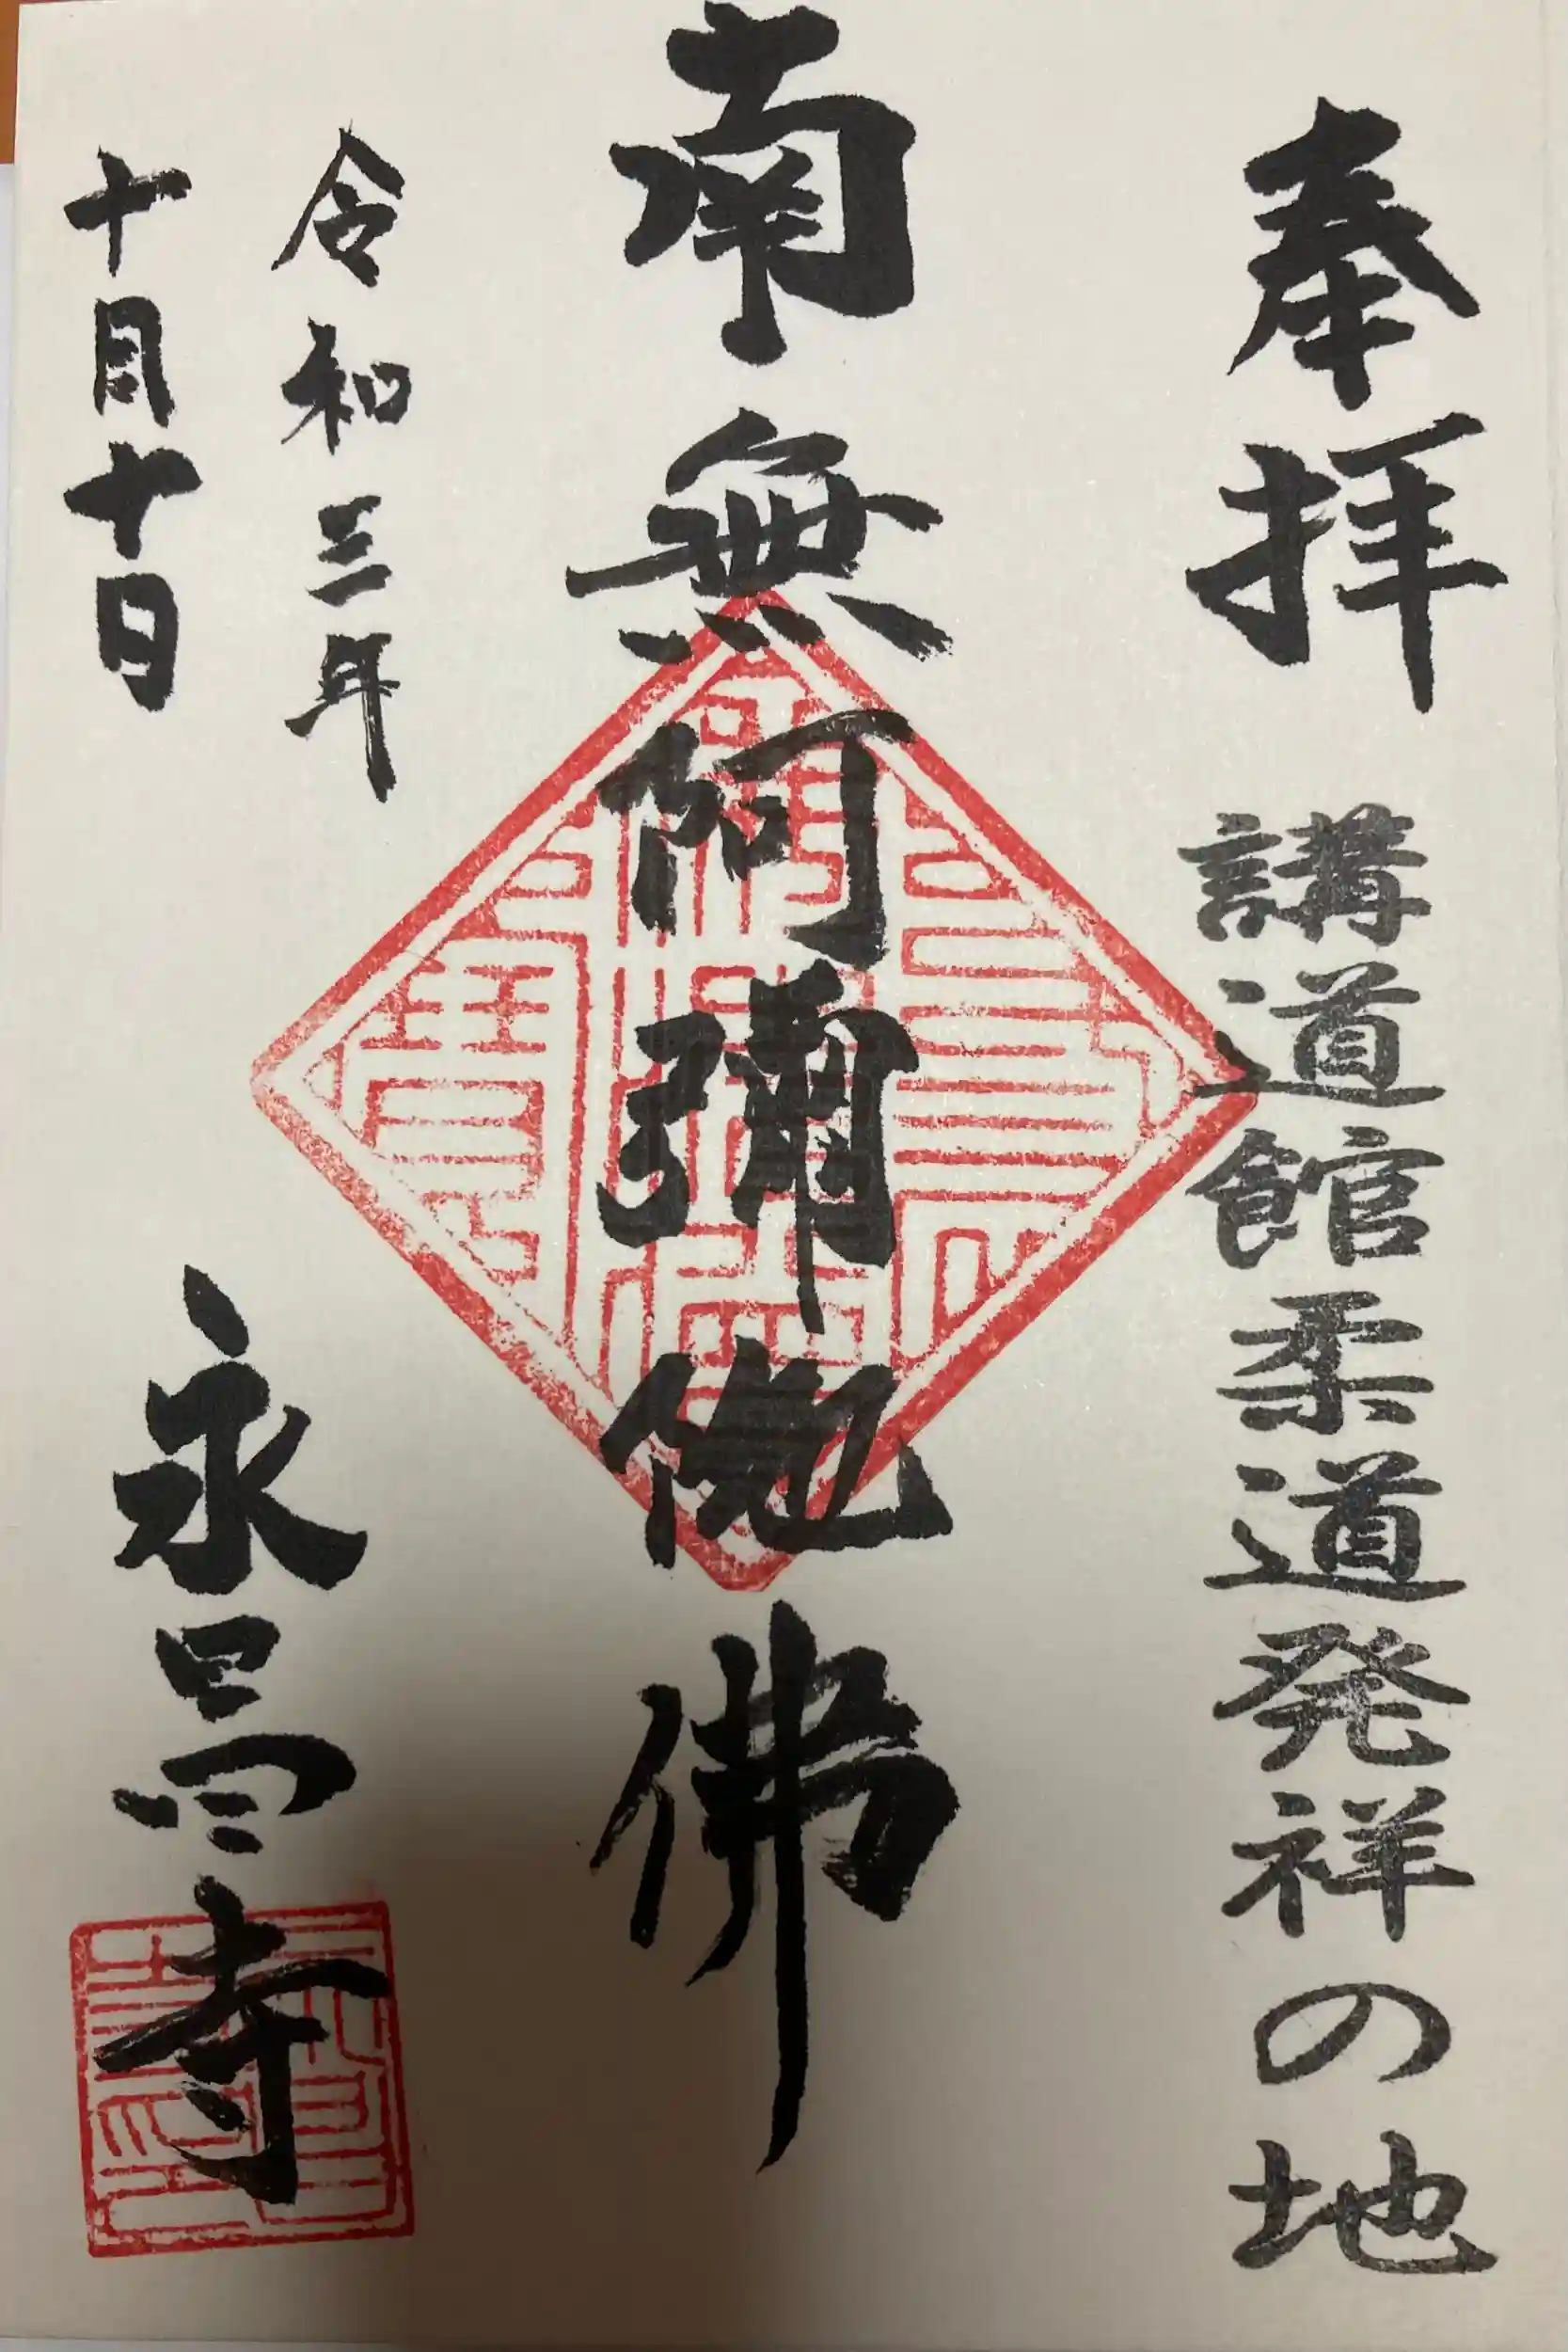 奉拝
講道館柔道発祥の地
南無阿彌佗佛
令和三年
十月十日
永昌寺